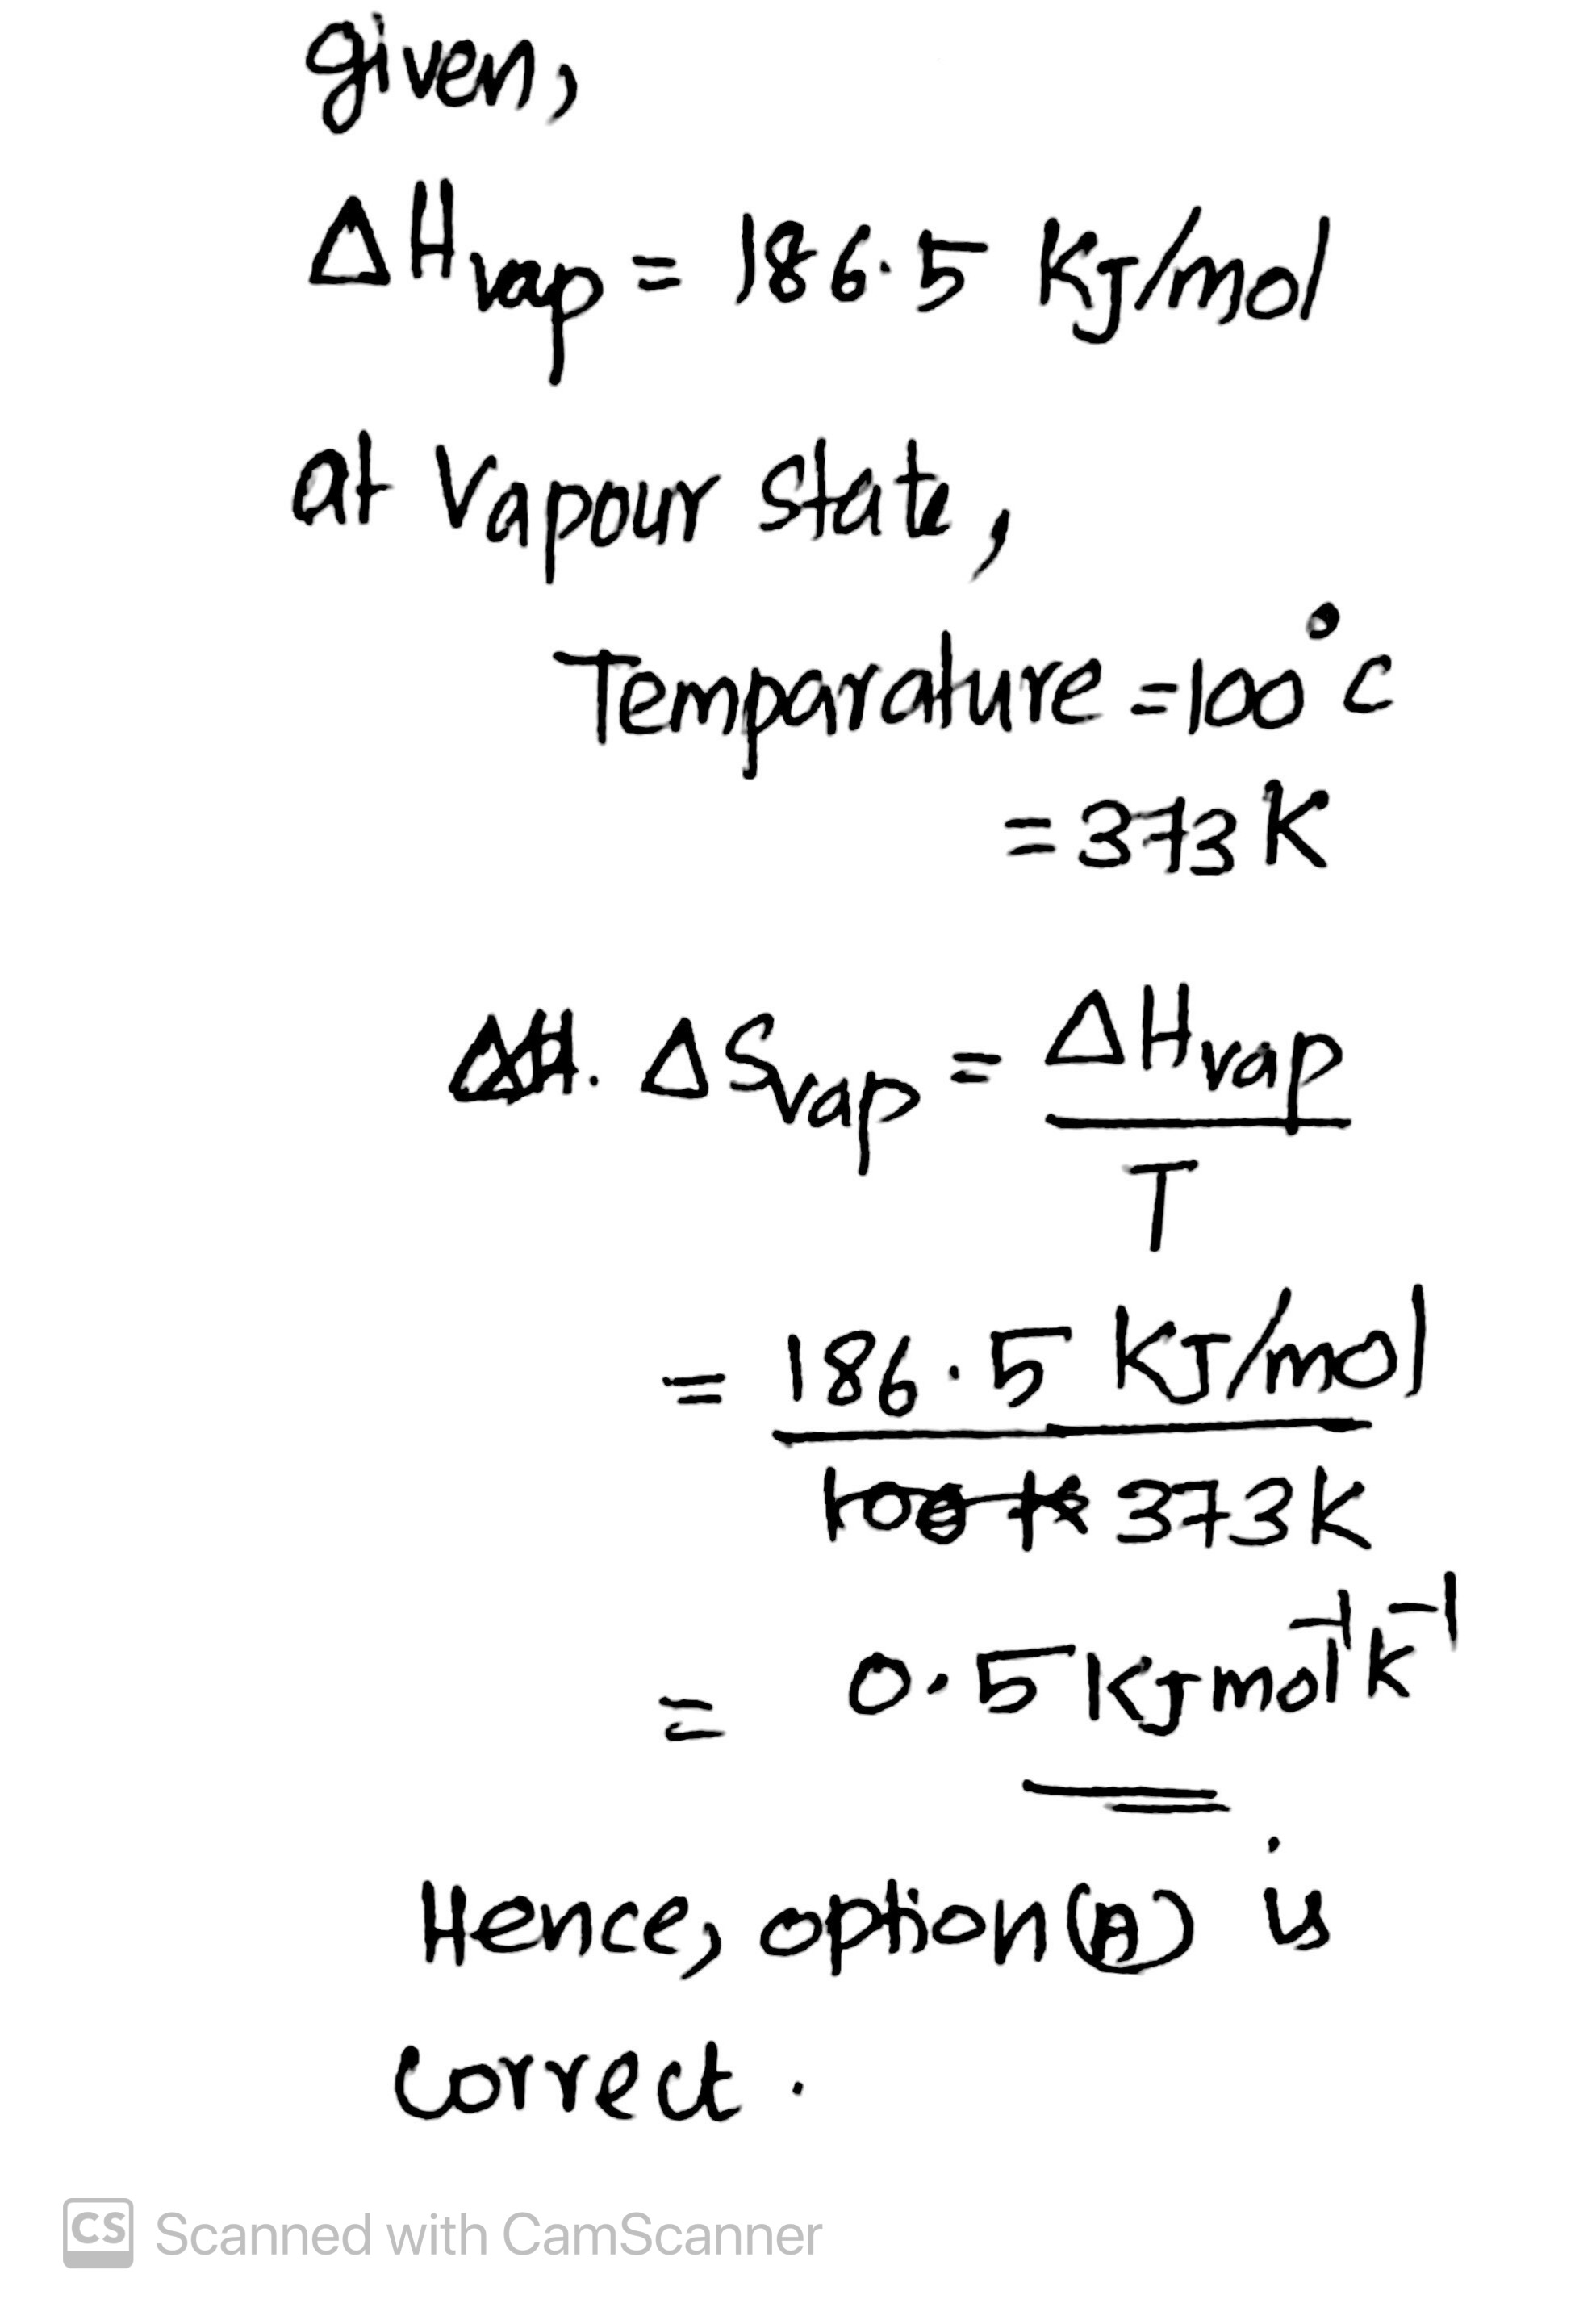 given,
ΔHvap = 186.5 KJ/mol
at Vapour state,
Temparature = 100°c
= 373 K
ΔSvap = ΔHvap
T
= 186.5 KJ/mol
373K
= 0.5 KJ mol⁻¹ K⁻¹
Hence, option (A) is
correct.
CS Scanned with CamScanner